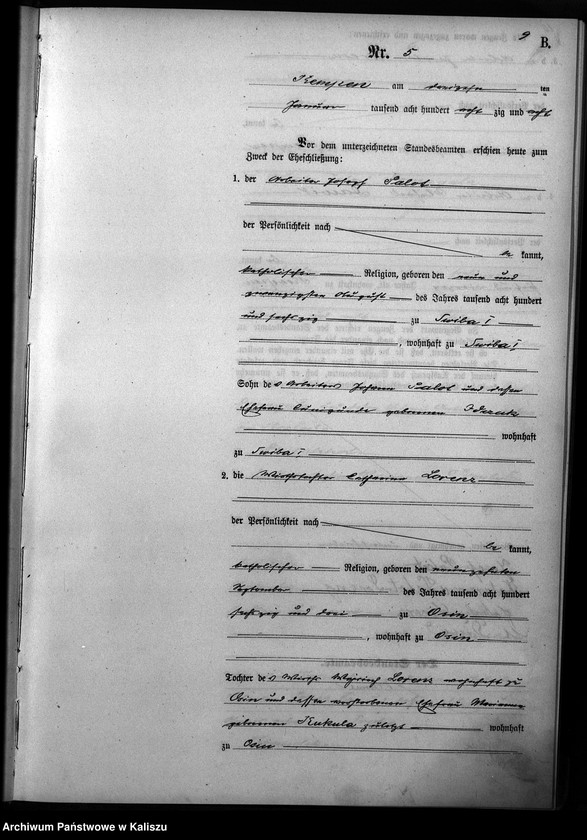 9
B.
Nr. 5
Kempen am dreizehn ten
Januar tausend acht hundert acht zig und acht
Vor dem unterzeichneten Standesbeamten erschien heute zum
Zweck der Eheschließung:
1. der Arbeiter Josef Salot
der Persönlichkeit nach
be kannt,
katholischer Religion, geboren den neun und
zwanzigsten August des Jahres tausend acht hundert
und sechzig zu Swiba I
, wohnhaft zu Swiba I,
Sohn des Arbeiters Johann Salot und dessen
Ehefrau Cunigunde geborenen
wohnhaft
zu Swiba I
2. die Wirthstochter Catharina Lorenz
der Persönlichkeit nach
be kannt,
katholischer Religion, geboren den neunzehnten
September des Jahres tausend acht hundert
sechzig und drei zu Osin
, wohnhaft zu Osin
Tochter des Wirths Lorenz wohnhaft zu
Osin und dessen verstorbenen Ehefrau Marianna
geborenen Kukula zuletzt wohnhaft
zu Osin
Archiwum Państwowe w Kaliszu